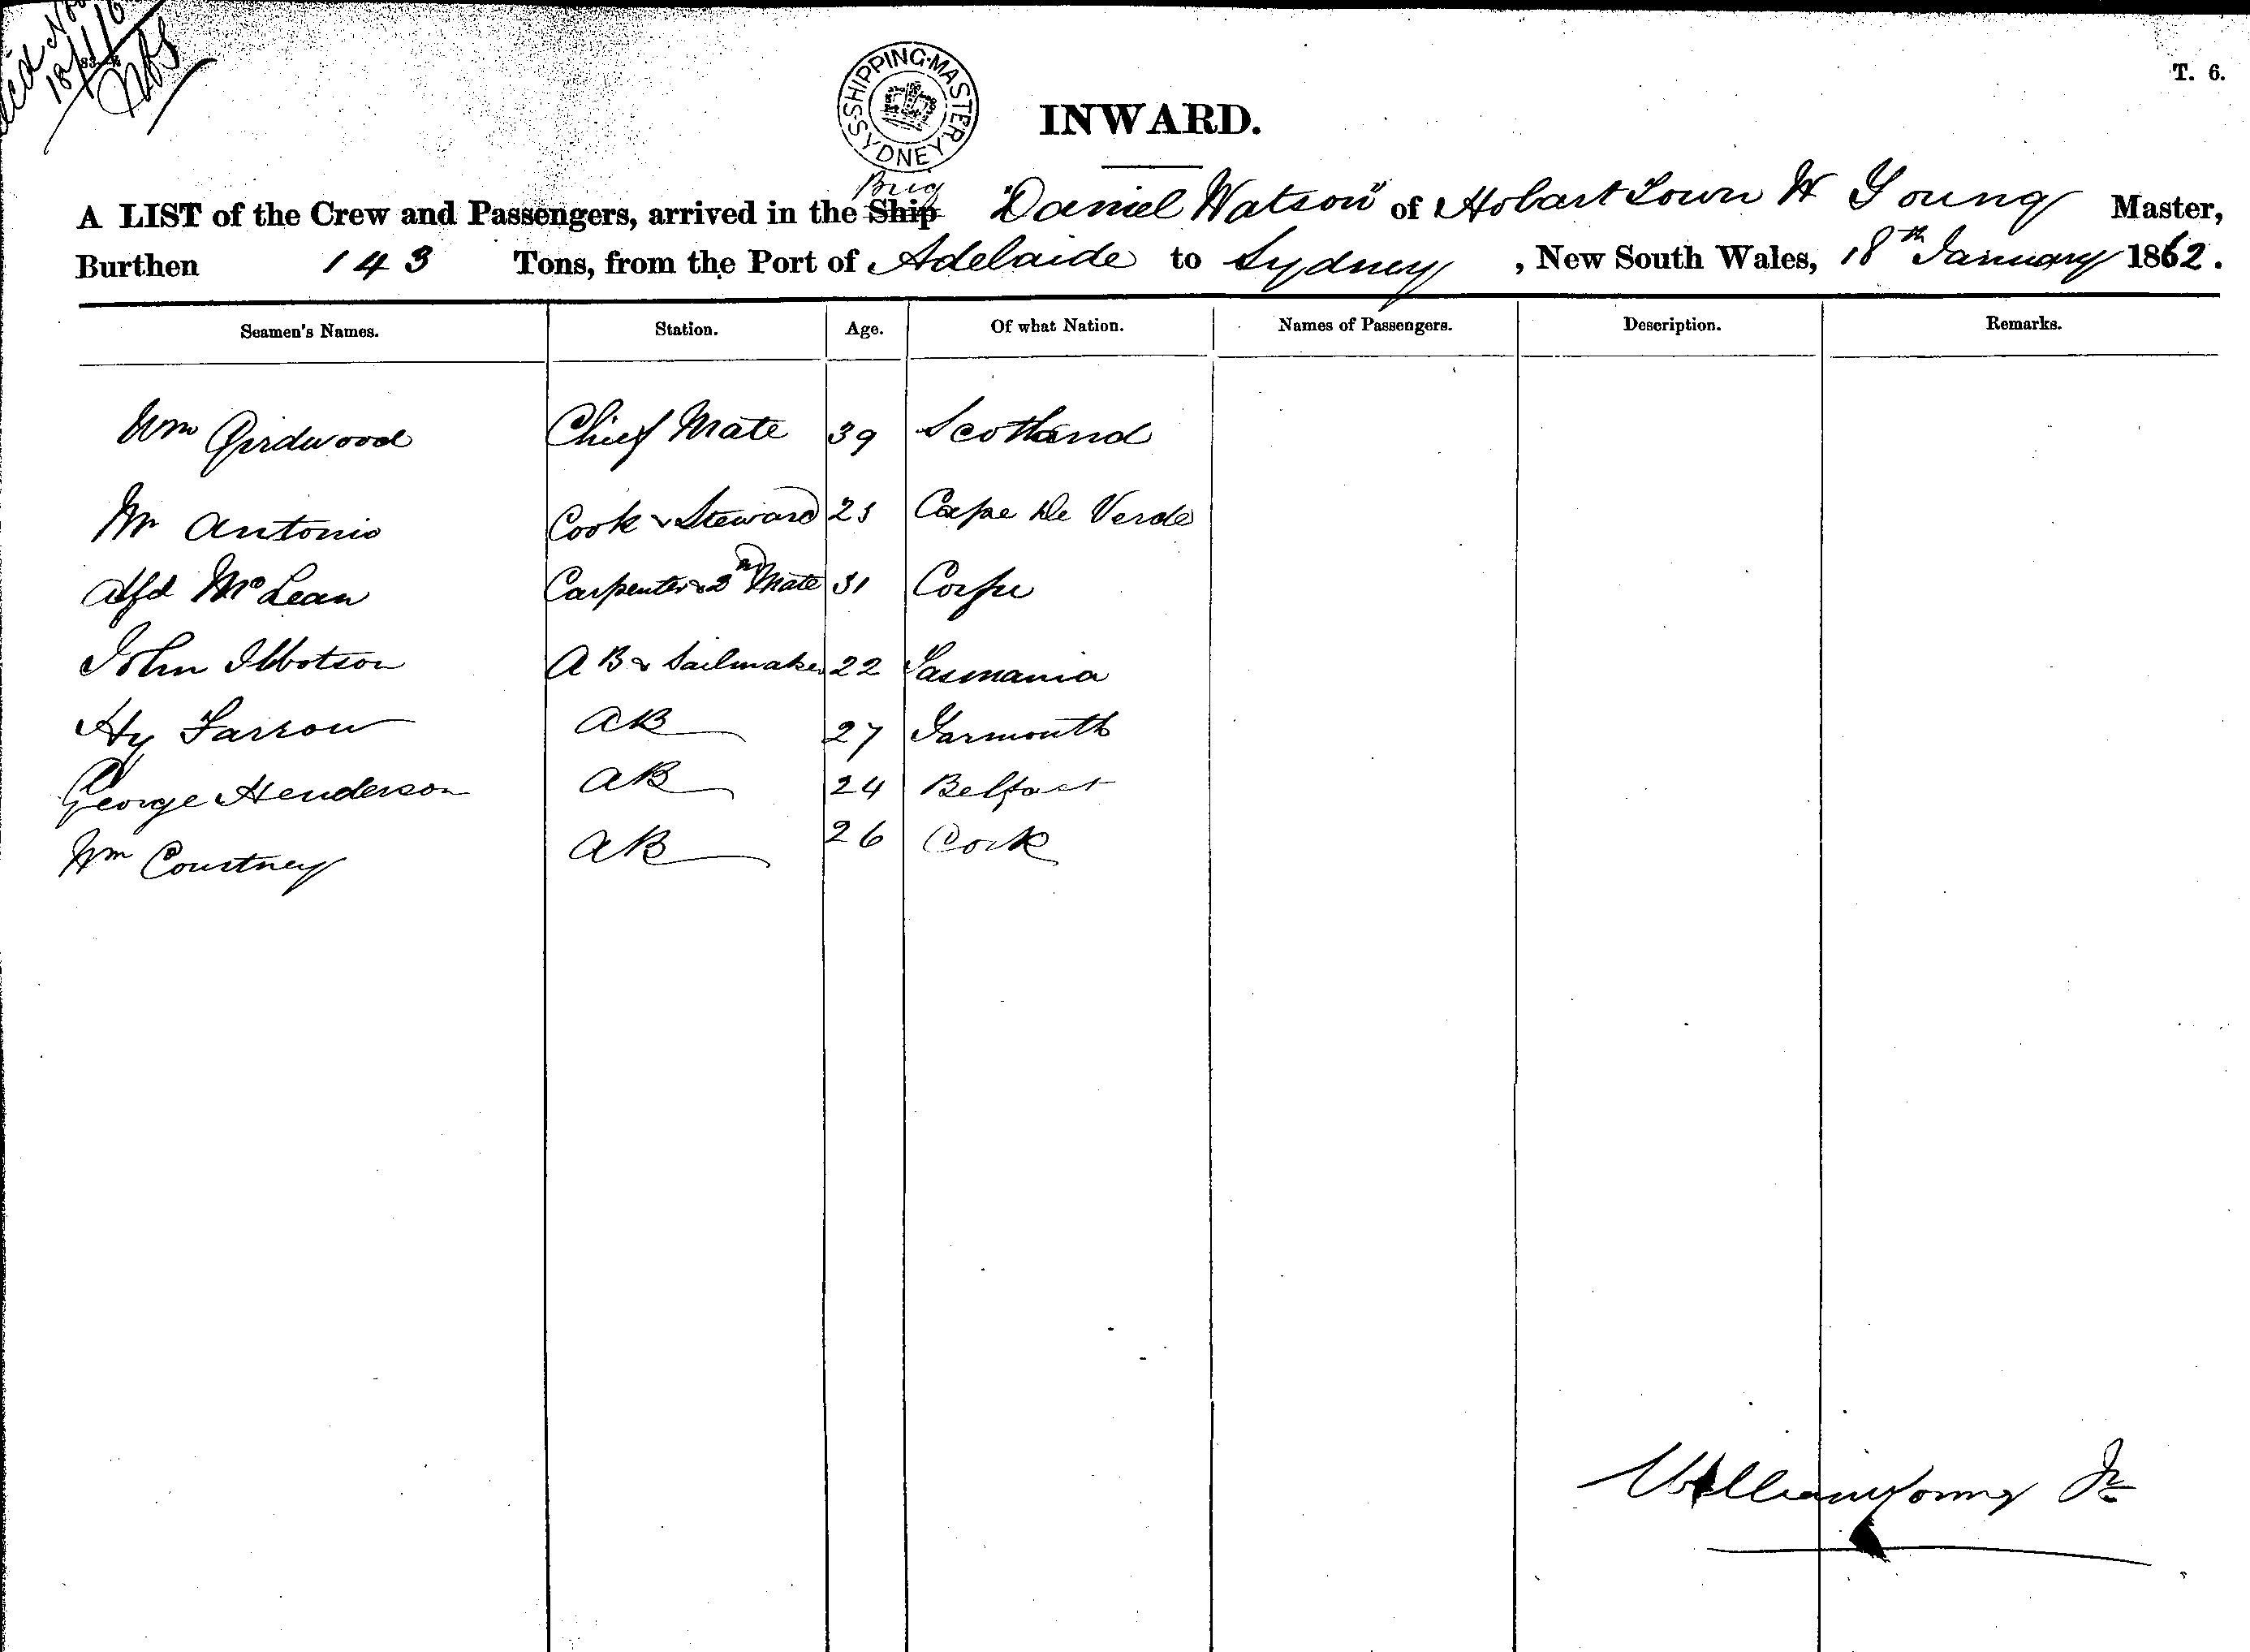 18/1/6
T. 6.
SHIPPING MASTER SYDNEY
INWARD.
Brig
A LIST of the Crew and Passengers, arrived in the Ship "Daniel Watson" of Hobart Town W Young Master,
Burthen 143 Tons, from the Port of Adelaide to Sydney, New South Wales, 18th January 1862.
Seamen's Names. Station. Age. Of what Nation. Names of Passengers. Description. Remarks.
Wm Girdwood Chief Mate 39 Scotland
Wm Antonio Cook & Steward 23 Cape De Verde
Alfd McLean Carpenter & 2nd Mate 31 Corfu
John Ibbotson A B & Sailmaker 22 Tasmania
Hy Farrow AB 27 Yarmouth
George Henderson AB 24 Belfast
Wm Courtney AB 26 Cork
William Young Jr